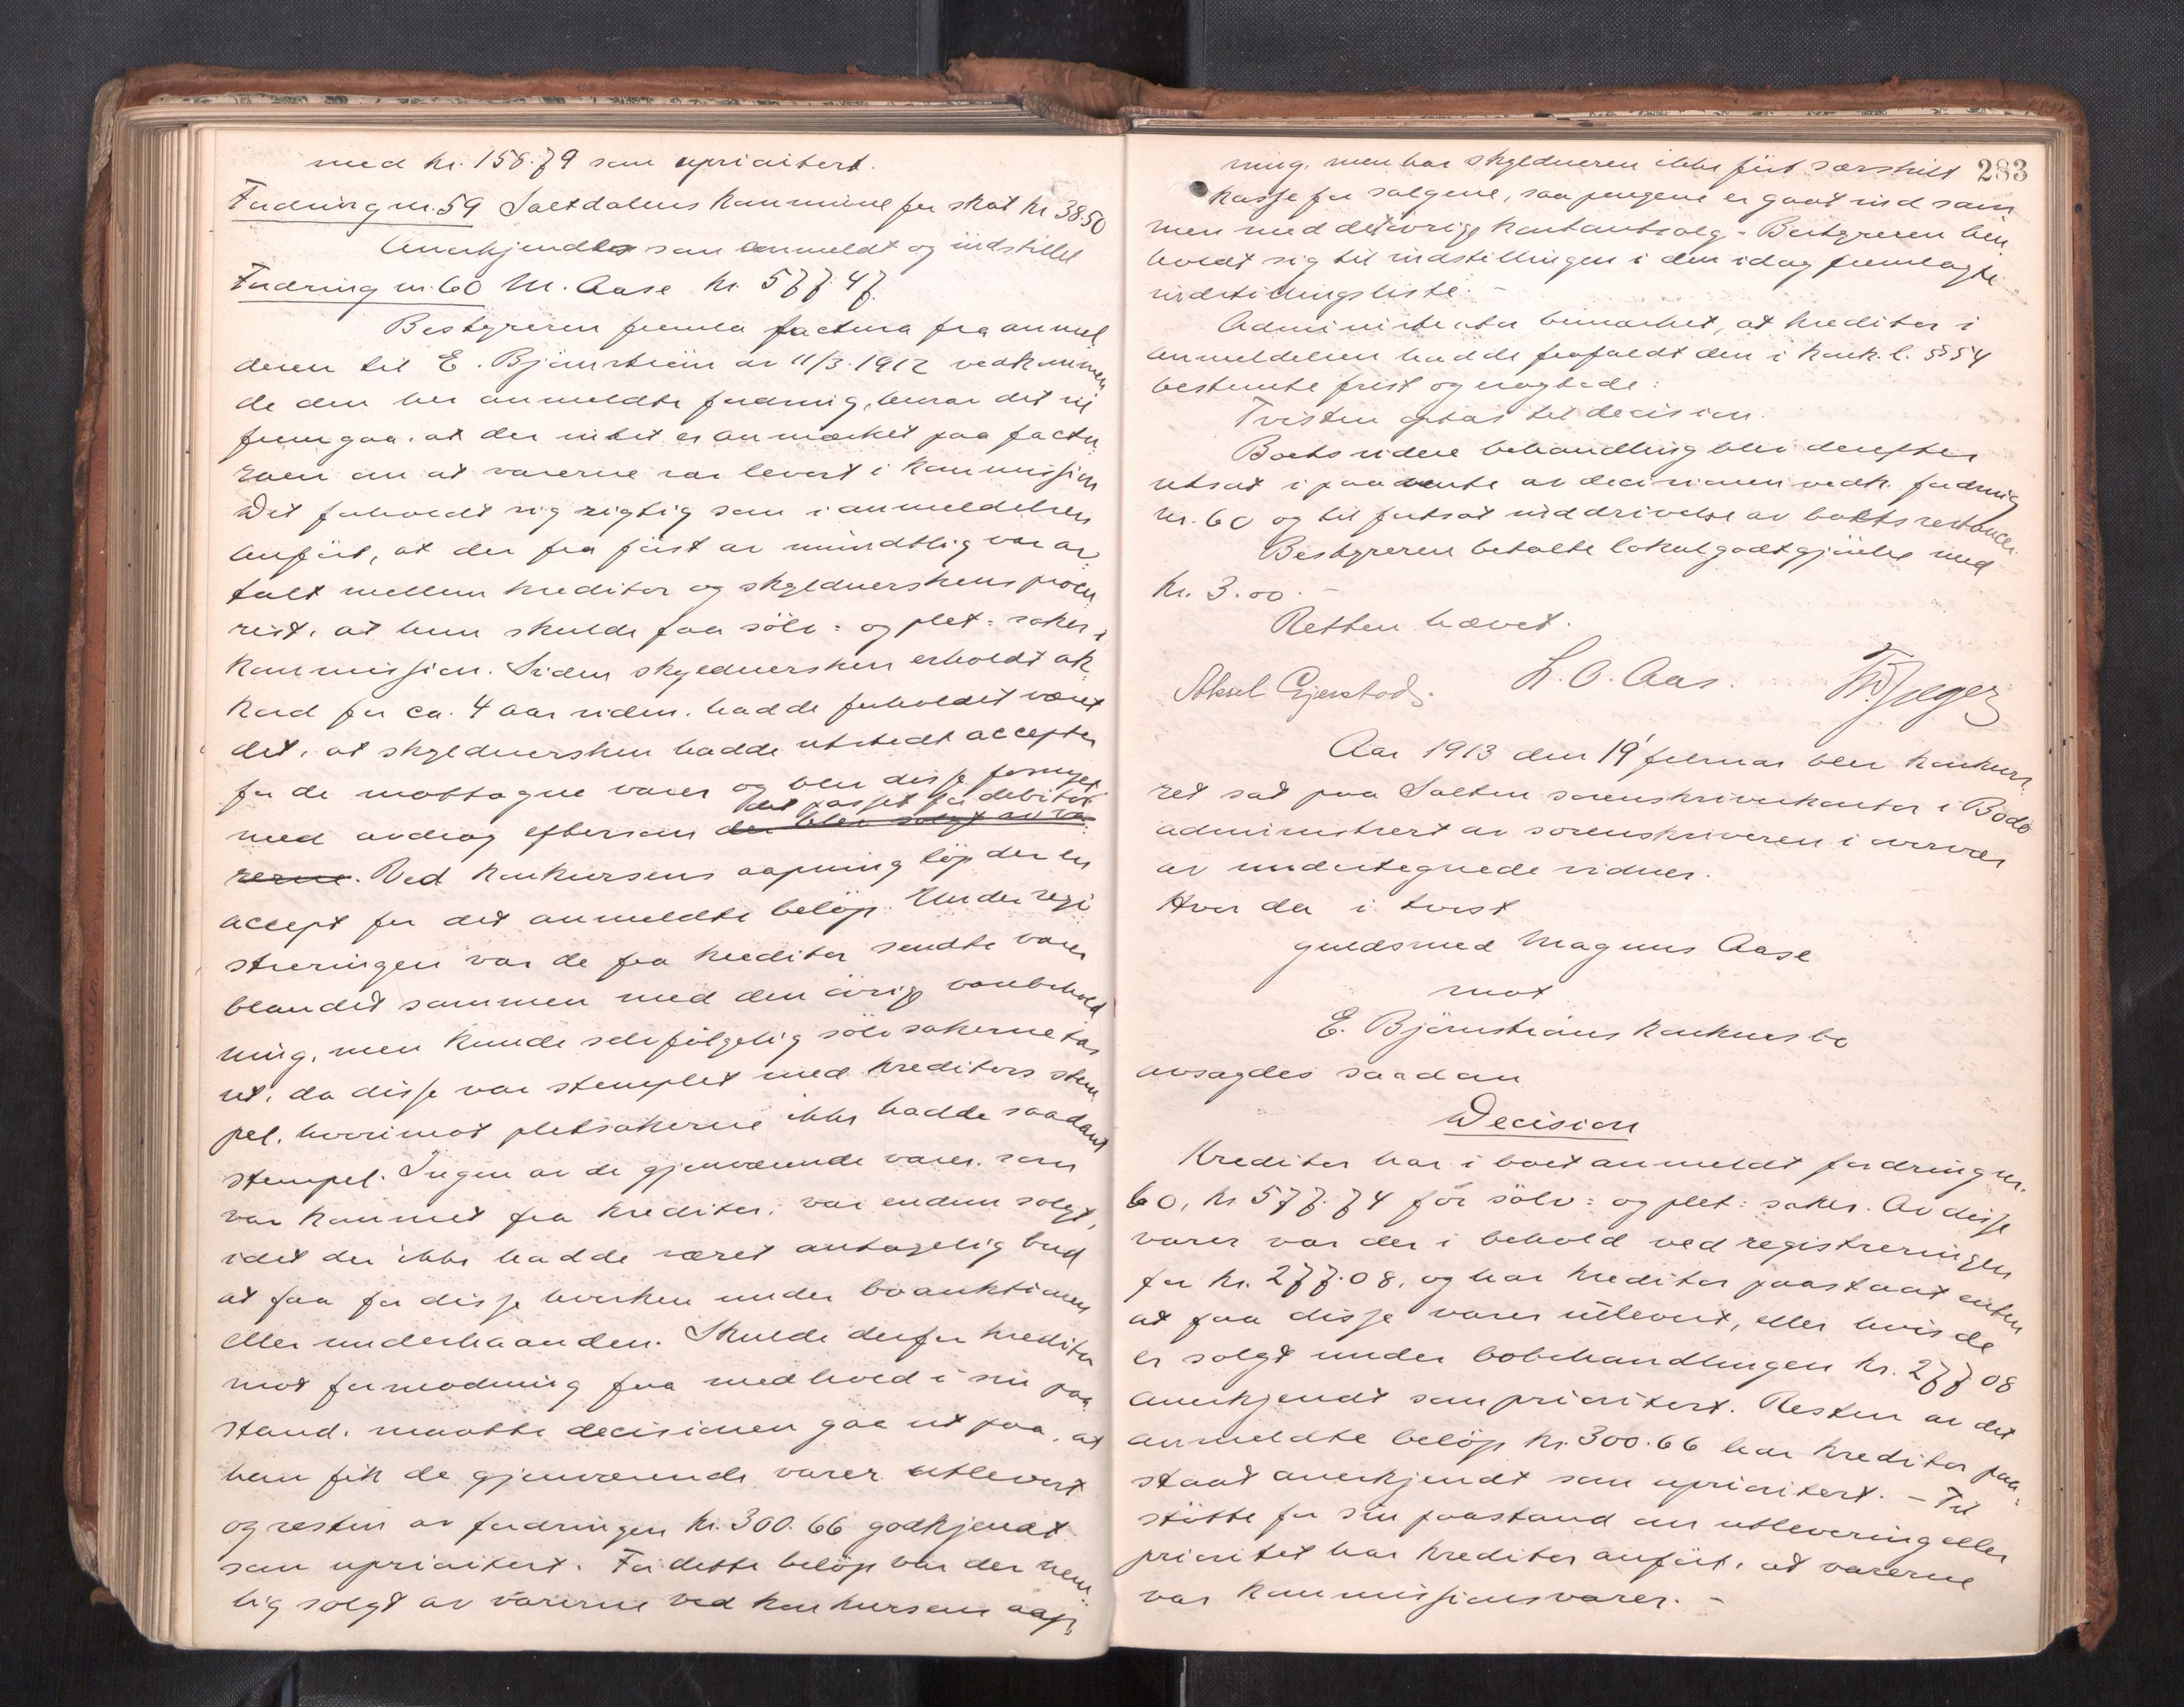 med kr. 158.79 som uprioitert.
Fordring nr. 59 Saltdalens kommune for skat kr 38.50
Anerkjendtes som anmeldt og indstillet
Fordring nr. 60 M. Aase kr 577.47.
Bestyreren fremla factura fra anmel
deren til E. Bjørnstrøm av 11/3.1912 vedkommen
de den her anmeldte fordring, hvorav det vil
fremgaa, at der intet er anmerket paa factu
raen om at varerne var levert i kommission
Det forholdt sig rigtig som i anmeldelsen
anført, at der fra først av mundtlig var av
talt mellem kreditor og skyldnerskens procu
rist, at hun skulde faa sölv= og plet=saker i
kommission. Siden skyldnersken erholdt ak
kord for ca. 4 aar siden, hadde forholdet været
det, at skyldnersken hadde utstedt accepter
for de mottagne varer og blev disse fornyet
det passet for debitor
med avdrag eftersom der blev solgt av va
rerne. Ved konkursens aapning löp der en
accept for det anmeldte belöp. Under regi
streringen var de fra kreditor sendte varer
blandet sammen med den övrige varebehold
ning, men kunde selvfölgelig sölvsakerne tas
ut, da disse var stemplet med kreditors stem
pel, hvorimot pletsakerne ikke hadde saadant
stempel. Ingen av de gjenværende varer, som
var kommet fra kreditor, var endnu solgt,
idet der ikke hadde været antagelig bud
at faa for disse hverken under boauktionen
eller underhaanden. Skulde derfor kreditor
mot formodning faa medhold i sin paa
stand, maatte decisionen gaa ut paa, at
han fik de gjenværende varer utlevert
og resten av fordringen kr. 300.66 godkjendt
som uprioitert. For dette belöp var der nem
lig solgt av varerne ved konkursens aap
283
ning, men har skyldneren ikke fört særskilt
kasse for salgene, saa pengene er gaat ind sam
men med det övrige kontantsalg. Bestyreren hen
holdt sig til indstillingen i den idag fremlagte
indstillingsliste. –
Administrator bemærket, at kreditor i
anmeldelsen hadde frafaldt den i konk. l. § 54
bestemte frist og eragtede:
Tvisten optas til decision.
Boets videre behandling blev derefter
utsat i paavente av decisionen vedk. fordring
nr. 60 og til fortsat inddrivelse av boets restancer.
Bestyreren betalte lokalgodtgjörelse med
kr. 3.00. –
Retten hævet.
Aksel Gjerstad. L. O. Aas. Th. Jæger
Aar 1913 den 19' februar blev konkurs
ret sat paa Salten sorenskriverkontor i Bodö
administrert av sorenskriveren i nærvær
av undertegnede vidner.
Hvor da i tvist
guldsmed Magnus Aase
mot
E. Bjørnstrøms konkursbo
avsagdes saadan
Decision
Kreditor har i boet anmeldt fordring nr.
60, kr 577.74 for sölv= og plet=saker. Av disse
varer var der i behold ved registreringen
for kr. 277.08, og har kreditor paastaat enten
at faa disse varer utlevert, eller hvis de
er solgt under bobehandlingen kr. 277.08
anerkjendt som prioritert. Resten av det
anmeldte belöp kr. 300.66 har kreditor paa
staat anerkjendt som uprioitert. – Til
stötte for sin paastand om utlevering eller
prioritet har kreditor anfört, at varerne
var kommissionsvarer. –